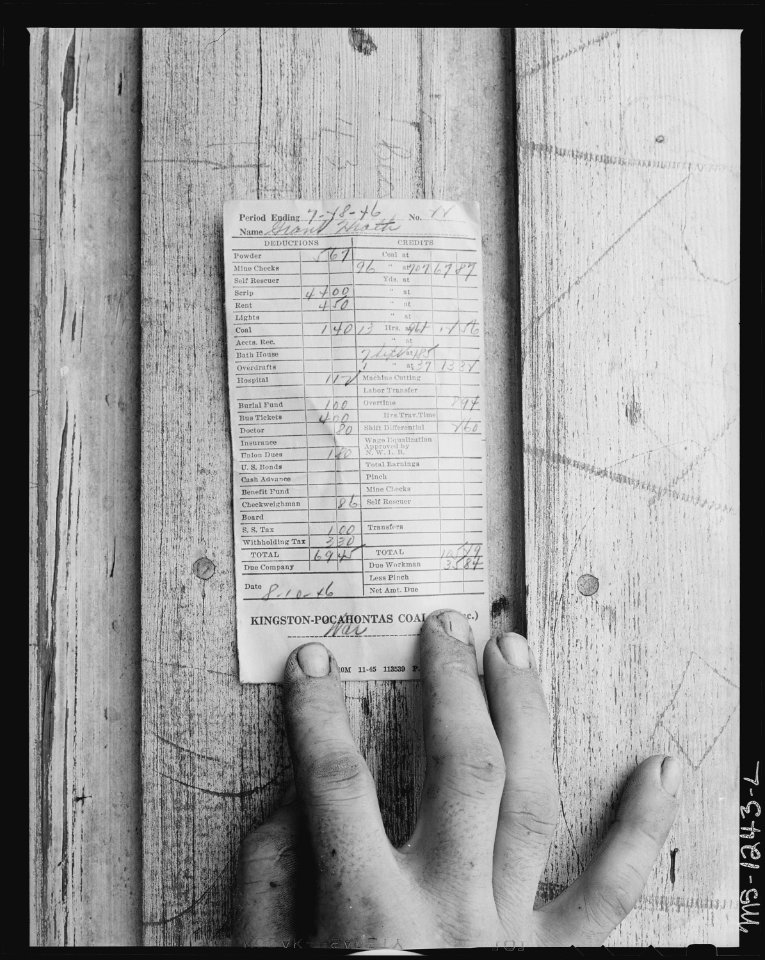 Period Ending 7-28-46 No.
Name Grant Heath
DEDUCTIONS CREDITS
Powder 5 67 Coal at
Mine Checks 96 " at 707 67 87
Self Rescuer Yds. at
Scrip 44 00 " at
Rent 4 50 " at
Lights " at
Coal 1 40 13 Hrs. at
Accts. Rec. " at
Bath House 7 at
Overdrafts " at 13 37
Hospital Machine Cutting
Labor Transfer
Burial Fund 1 00 Overtime
Bus Tickets 4 00 Hrs Trav. Time
Doctor 80 Shift Differential
Insurance Wage Equalization
Approved by
N. W. L. B.
Union Dues Total Earnings
U. S. Bonds
Cash Advance Pinch
Benefit Fund Mine Checks
Checkweighman 86 Self Rescuer
Board
S. S. Tax 1 00 Transfers
Withholding Tax 3 30
TOTAL 69 45 TOTAL
Due Company Due Workman 35 84
Less Pinch
Date 8-10-46 Net Amt. Due
KINGSTON-POCAHONTAS COAL
War
0M 11-45 112539 P.
MS-1243-L